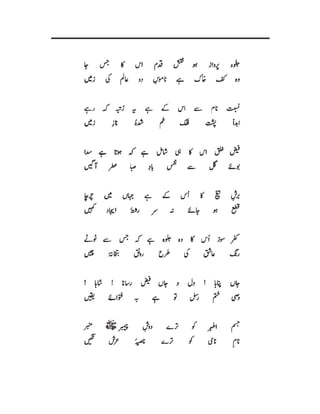 جلوہ پرداز ہو نقشِ قدم اس کا جس جا
وہ کفِ خاک ہے ناموسِ دو عالم کی زمیں
نسبت نام سے اس کے ہے یہ رُتبہ کہ رہے
ابداً پشتِ فلک خم شدۂ نازِ زمیں
فیضِ خلق اس کا ہی شامل ہے کہ ہوتا ہے سدا
بوئے گل سے نفسِ بادِ صبا عطر آگیں
برشِ تیغ کا اُس کے ہے جہاں میں چرچا
قطع ہو جائے نہ سر رشتۂ ایجاد کہیں
کفر سوز اُس کا وہ جلوہ ہے کہ جس سے ٹوٹے
رنگِ عاشق کی طرح رونقِ بتخانۂ چیں
جاں پناہا ! دل و جاں فیض رسانا ! شاہا !
وصیِ ختمِ رسل تو ہے بہ فتوائے یقیں
جسمِ اطہر کو ترے دوشِ پیمبر ﷺ منبر
نامِ نامی کو ترے ناصیۂ عرش نگیں